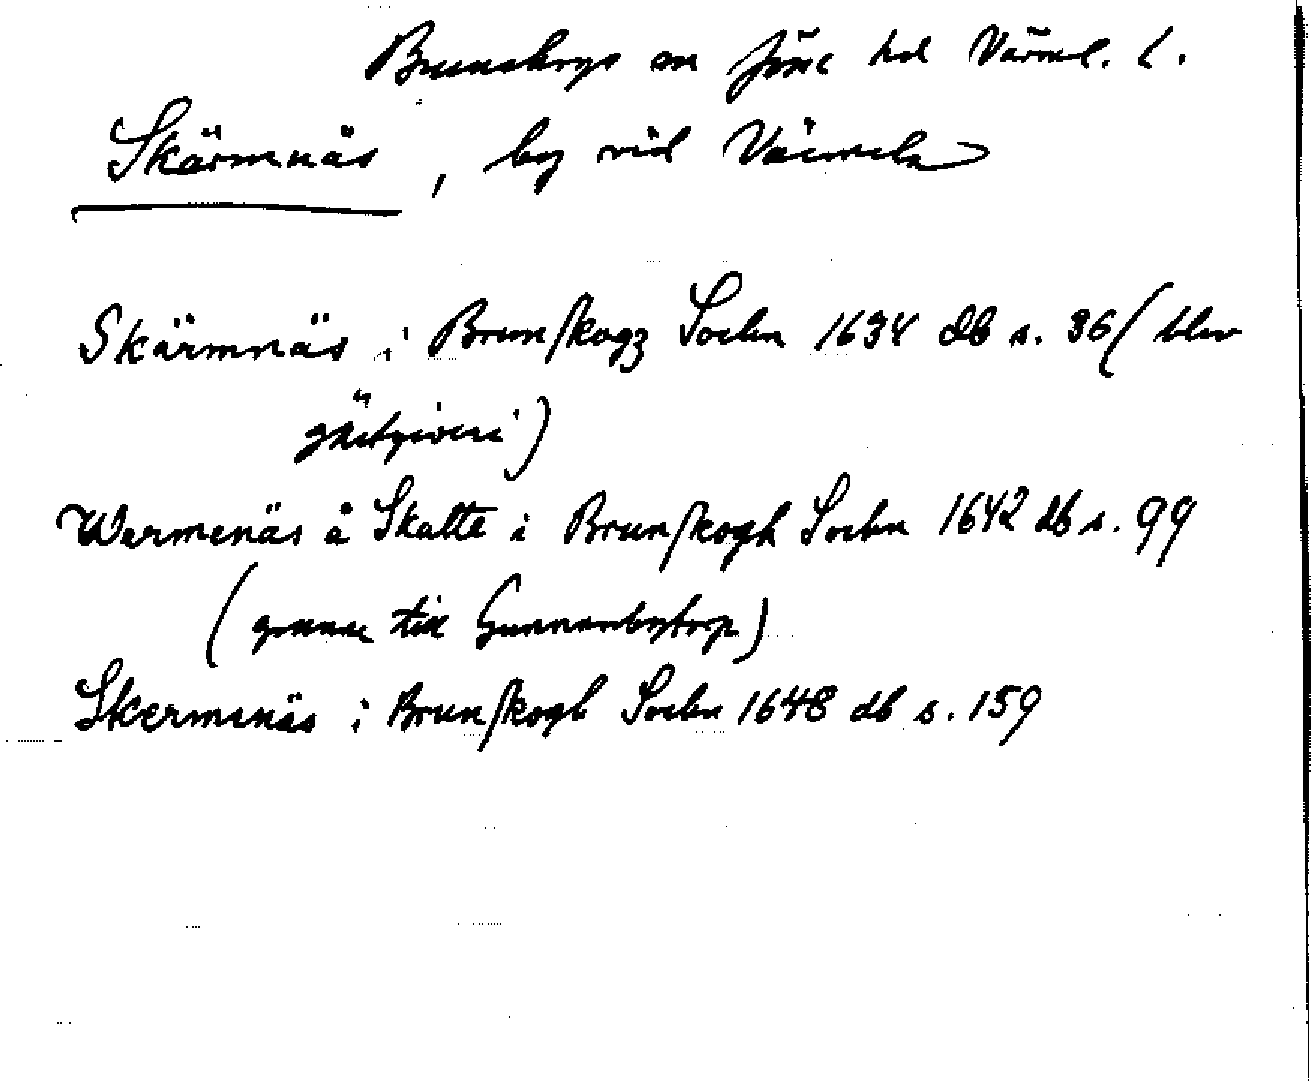 Brunskogs sn Jösse hd Värml. l.
Skärmnäs, by vid Värmeln
Skärmnäs i Brunskogz Sochn 1634 db s. 36 (blev
gästgiveri)
Wermenäs å Skatte i Brunskogh Sochn 1642 db s. 99
(granne till Gunnarsbytorp)
Skermenäs i Brunskogh Sochn 1648 db s. 159